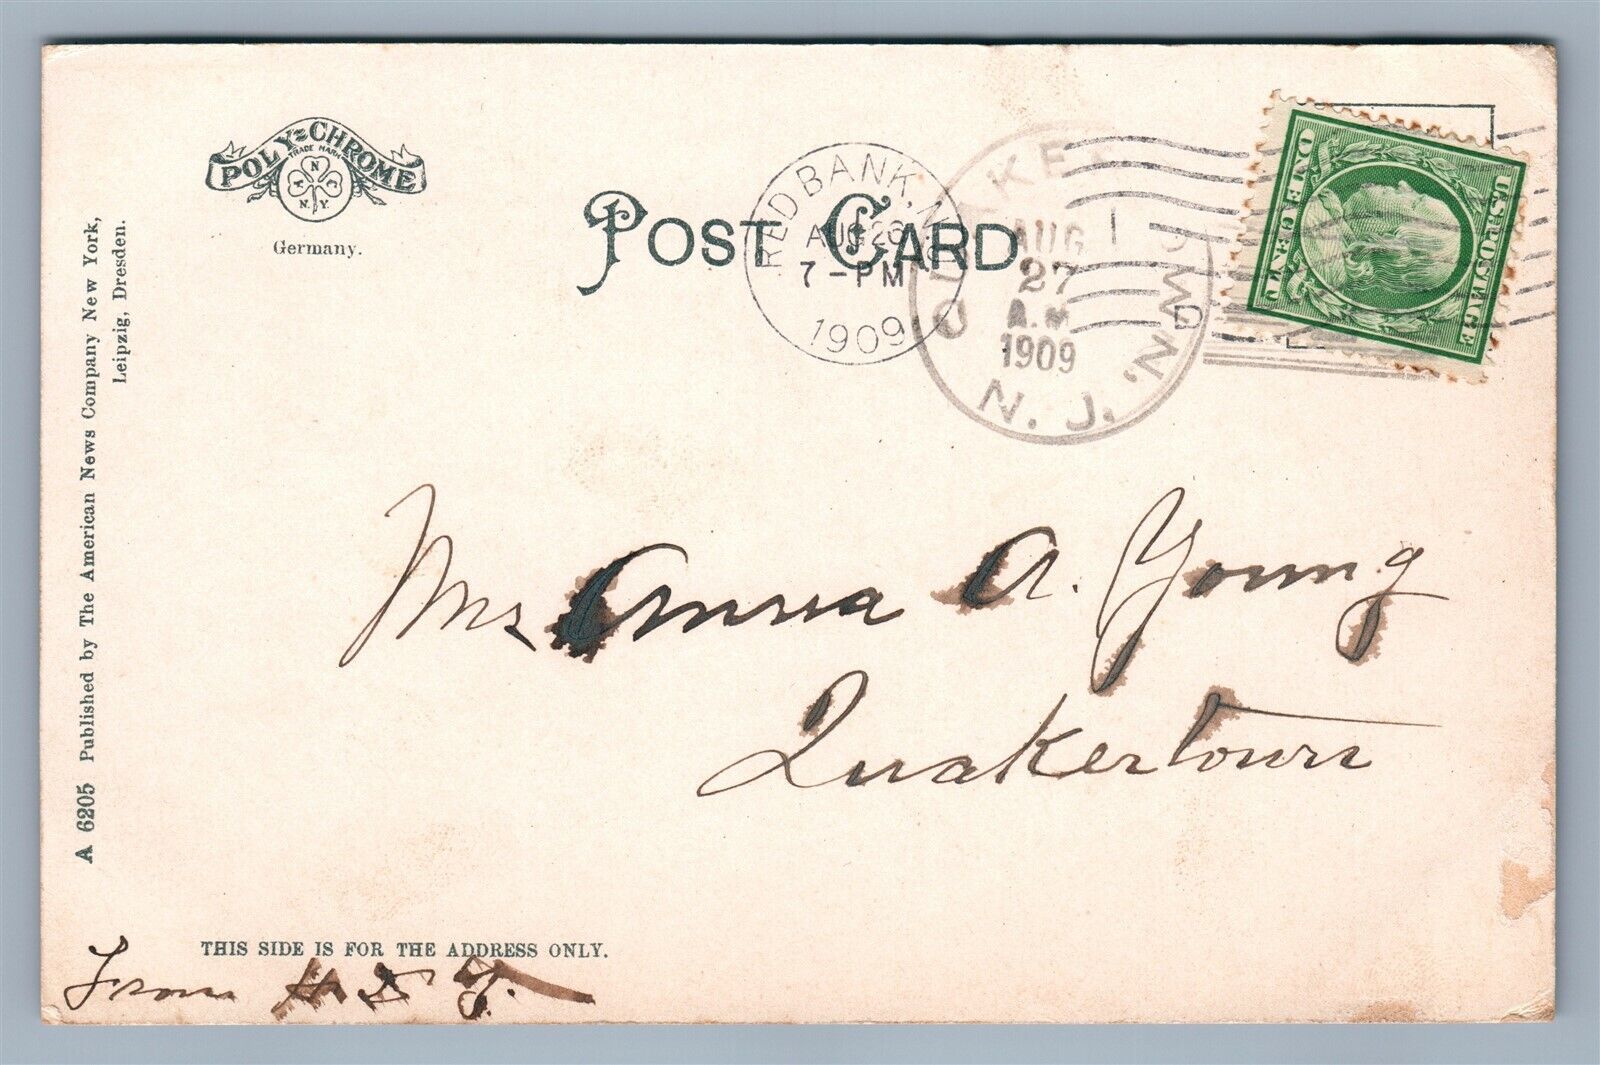 POLY-CHROME
TRADE MARK
A N C
N.Y.
Germany.
POST CARD
RED BANK, N.
AUG 26
7-PM
1909
QUAKERTOWN, N. J.
AUG
27
A.M
1909
1
D
U.S. POSTAGE
ONE CENT
A 6205 Published by The American News Company New York,
Leipzig, Dresden.
Mrs Anna A. Young
Quakertown
THIS SIDE IS FOR THE ADDRESS ONLY.
From H D Y.